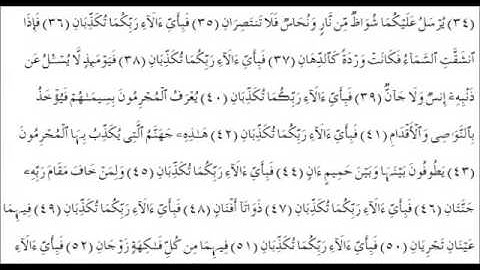 (٣٤) يُرْسَلُ عَلَيْكُمَا شُوَاظٌ مِّن نَّارٍ وَنُحَاسٌ فَلَا تَنتَصِرَانِ (٣٥) فَبِأَيِّ ءَالَآءِ رَبِّكُمَا تُكَذِّبَانِ (٣٦) فَإِذَا
ٱنشَقَّتِ ٱلسَّمَآءُ فَكَانَتْ وَرْدَةً كَٱلدِّهَانِ (٣٧) فَبِأَيِّ ءَالَآءِ رَبِّكُمَا تُكَذِّبَانِ (٣٨) فَيَوْمَئِذٍ لَّا يُسْـَٔلُ عَن
ذَنۢبِهِۦٓ إِنسٌ وَلَا جَآنٌّ (٣٩) فَبِأَيِّ ءَالَآءِ رَبِّكُمَا تُكَذِّبَانِ (٤٠) يُعْرَفُ ٱلْمُجْرِمُونَ بِسِيمَٰهُمْ فَيُؤْخَذُ
بِٱلنَّوَٰصِى وَٱلْأَقْدَامِ (٤١) فَبِأَيِّ ءَالَآءِ رَبِّكُمَا تُكَذِّبَانِ (٤٢) هَٰذِهِۦ جَهَنَّمُ ٱلَّتِى يُكَذِّبُ بِهَا ٱلْمُجْرِمُونَ
(٤٣) يَطُوفُونَ بَيْنَهَا وَبَيْنَ حَمِيمٍ ءَانٍ (٤٤) فَبِأَيِّ ءَالَآءِ رَبِّكُمَا تُكَذِّبَانِ (٤٥) وَلِمَنْ خَافَ مَقَامَ رَبِّهِۦ
جَنَّتَانِ (٤٦) فَبِأَيِّ ءَالَآءِ رَبِّكُمَا تُكَذِّبَانِ (٤٧) ذَوَاتَآ أَفْنَانٍ (٤٨) فَبِأَيِّ ءَالَآءِ رَبِّكُمَا تُكَذِّبَانِ (٤٩) فِيهِمَا
عَيْنَانِ تَجْرِيَانِ (٥٠) فَبِأَيِّ ءَالَآءِ رَبِّكُمَا تُكَذِّبَانِ (٥١) فِيهِمَا مِن كُلِّ فَٰكِهَةٍ زَوْجَانِ (٥٢) فَبِأَيِّ ءَالَآءِ